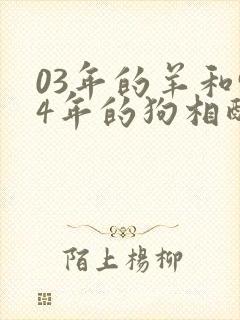 03年的羊和
4年的狗相
陌上杨柳